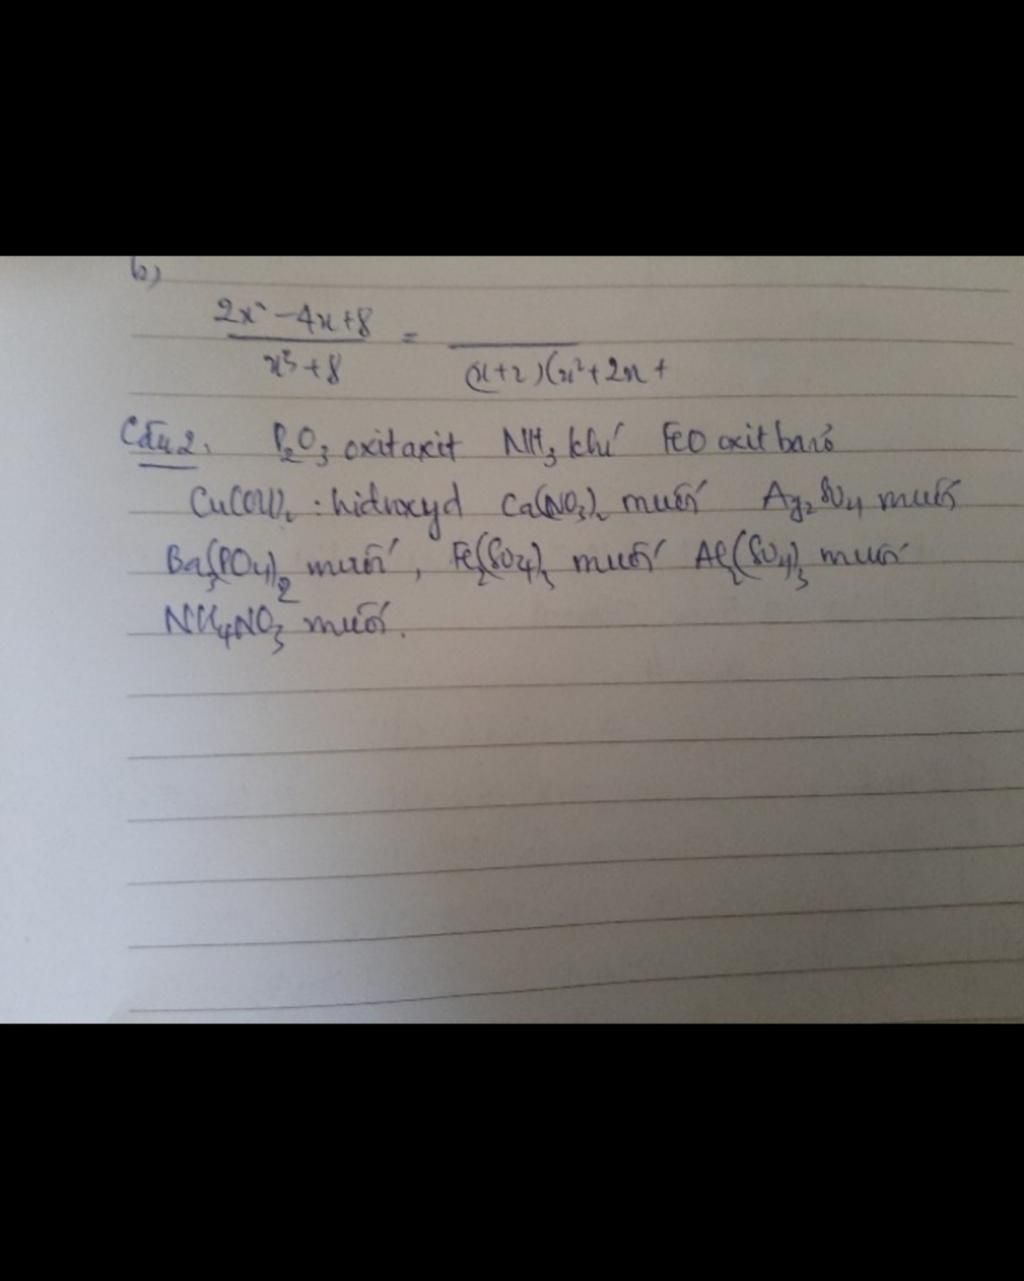 b)
2x² - 4x + 8 / x³ + 8 = / (x+2)(x²+2x+
Câu 2. P₂O₃ oxit axit NH₃ khí FeO oxit bazơ
Cu(OH)₂ : hidroxyd Ca(NO₃)₂ muối Ag₂SO₄ muối
Ba₃(PO₄)₂ muối, Fe₂(SO₄)₃ muối Al₂(SO₄)₃ muối
NH₄NO₃ muối.